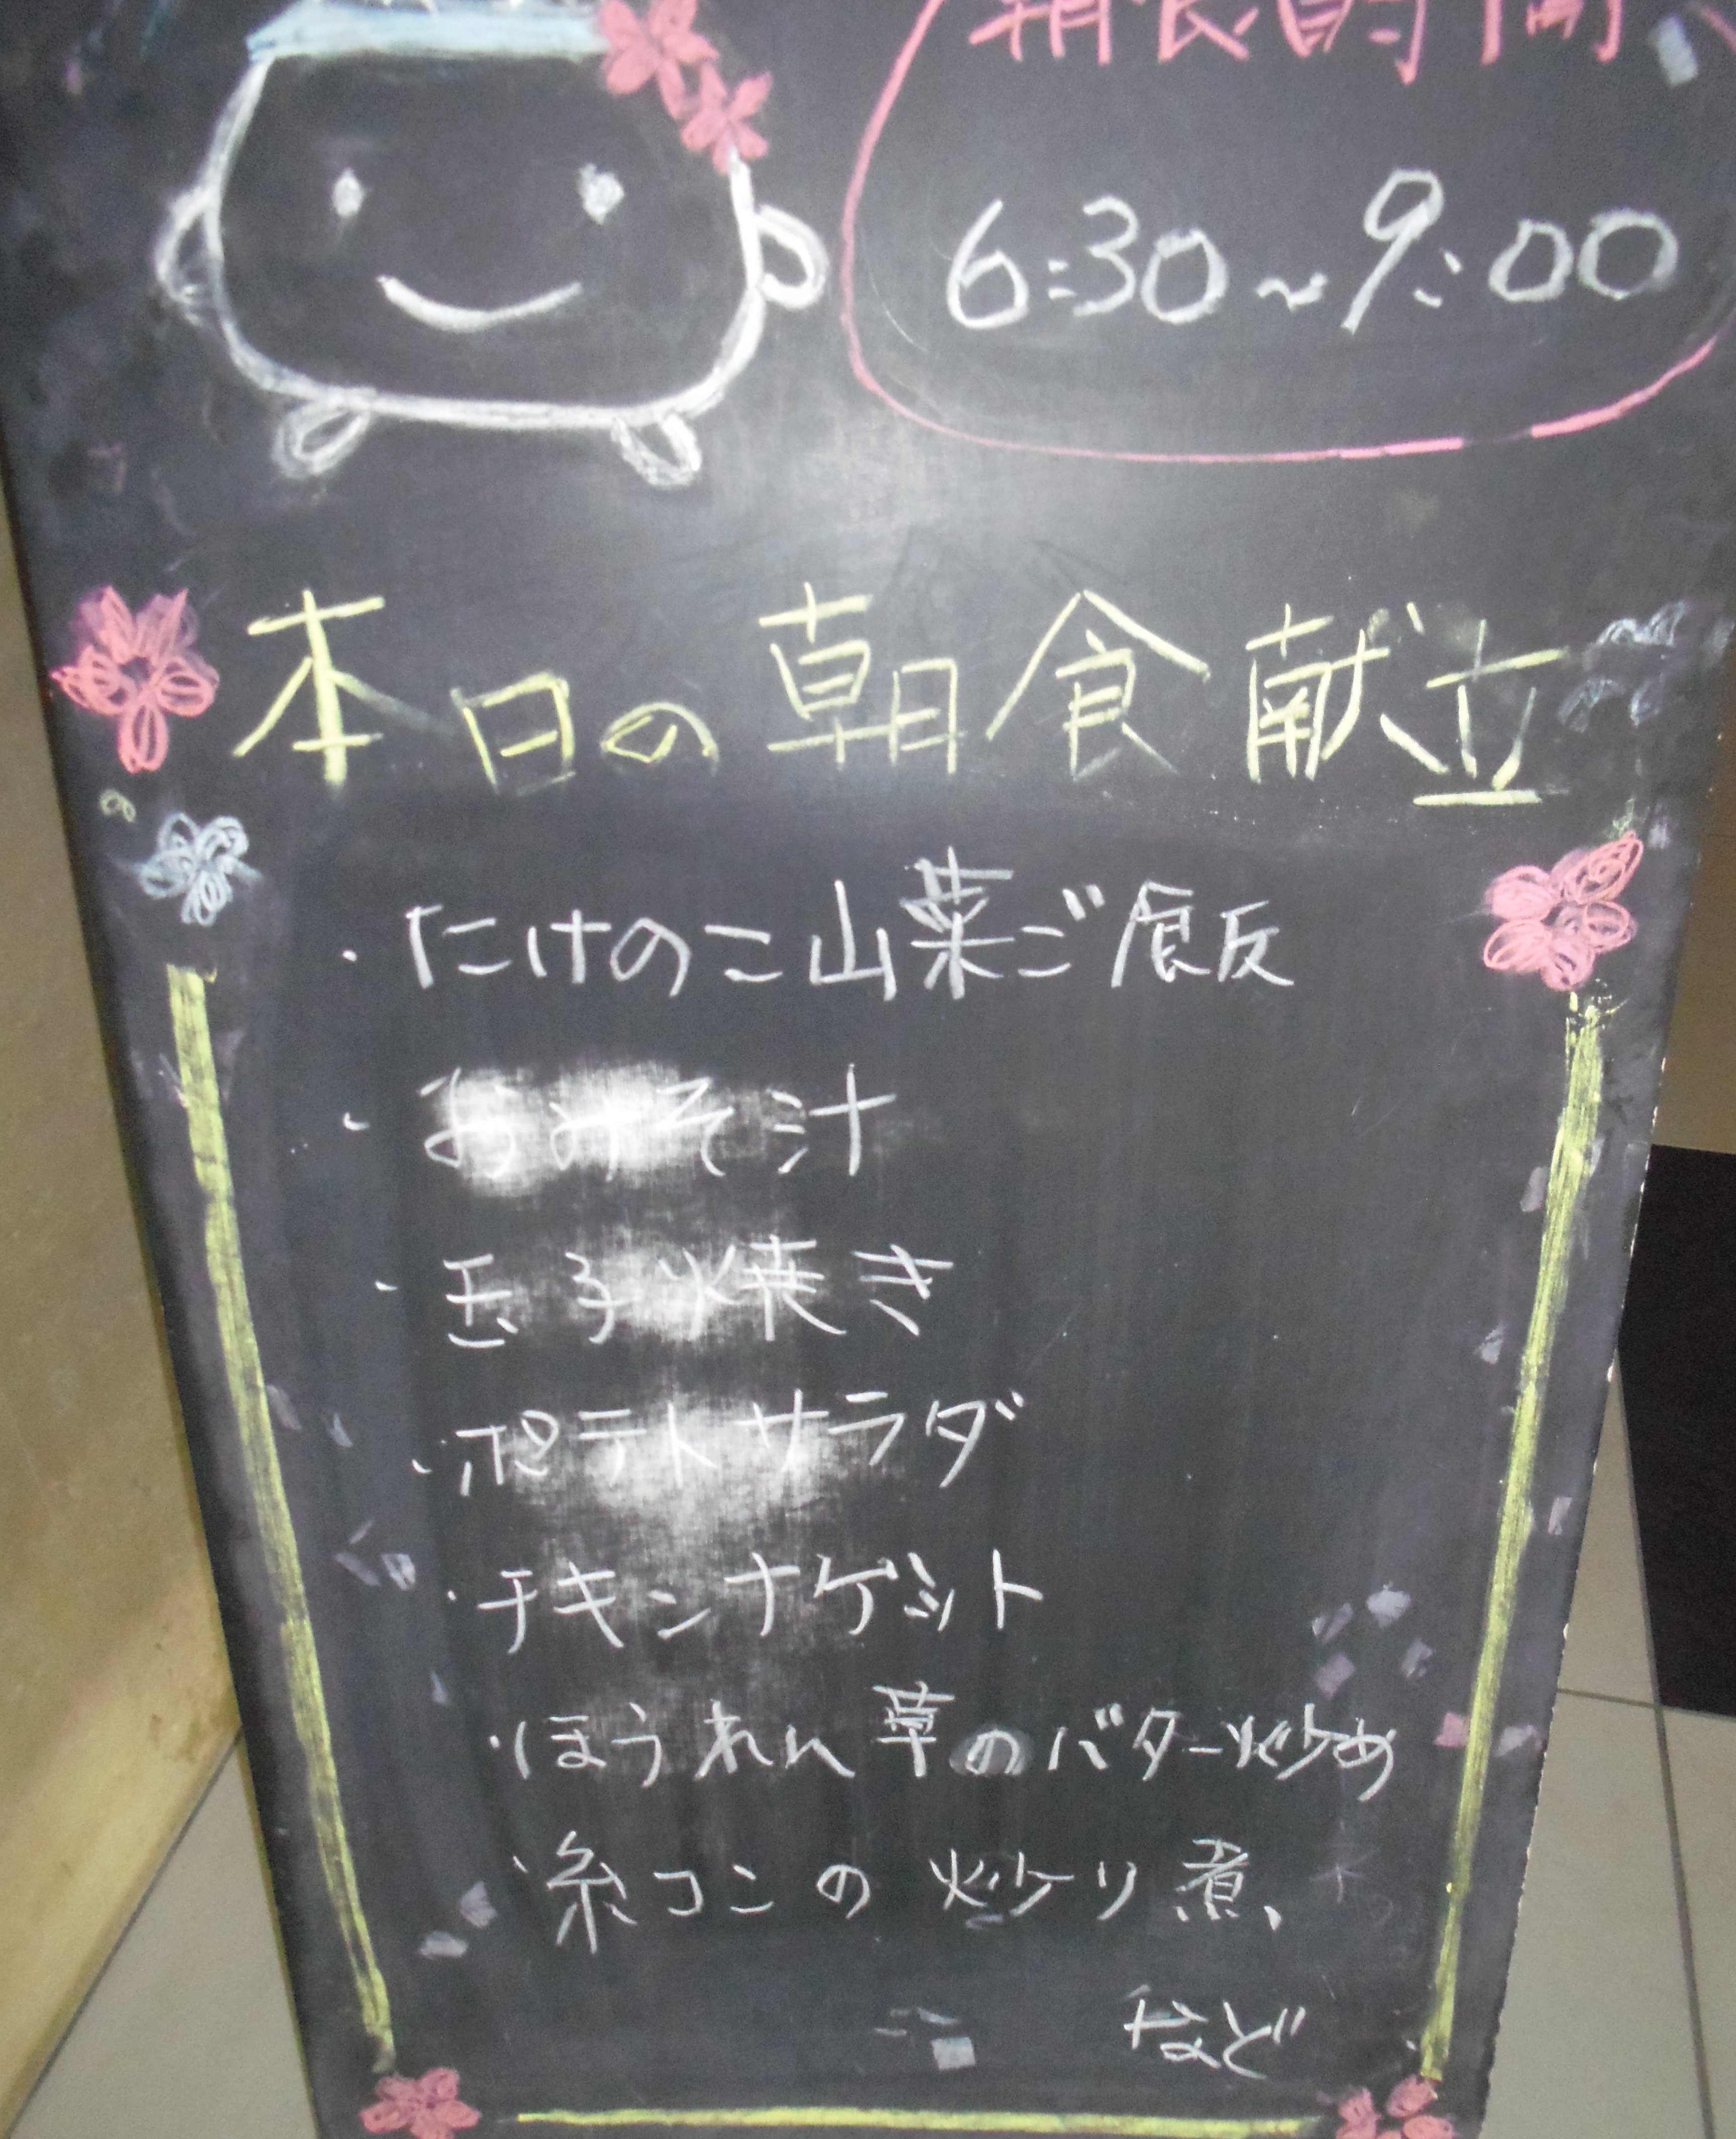 朝食時間
6:30~9:00
本日の朝食献立
・たけのこ山菜ご飯
・おみそ汁
・玉子焼き
・ポテトサラダ
・チキンナゲット
・ほうれん草のバター炒め
・糸コンの炒り煮、
など